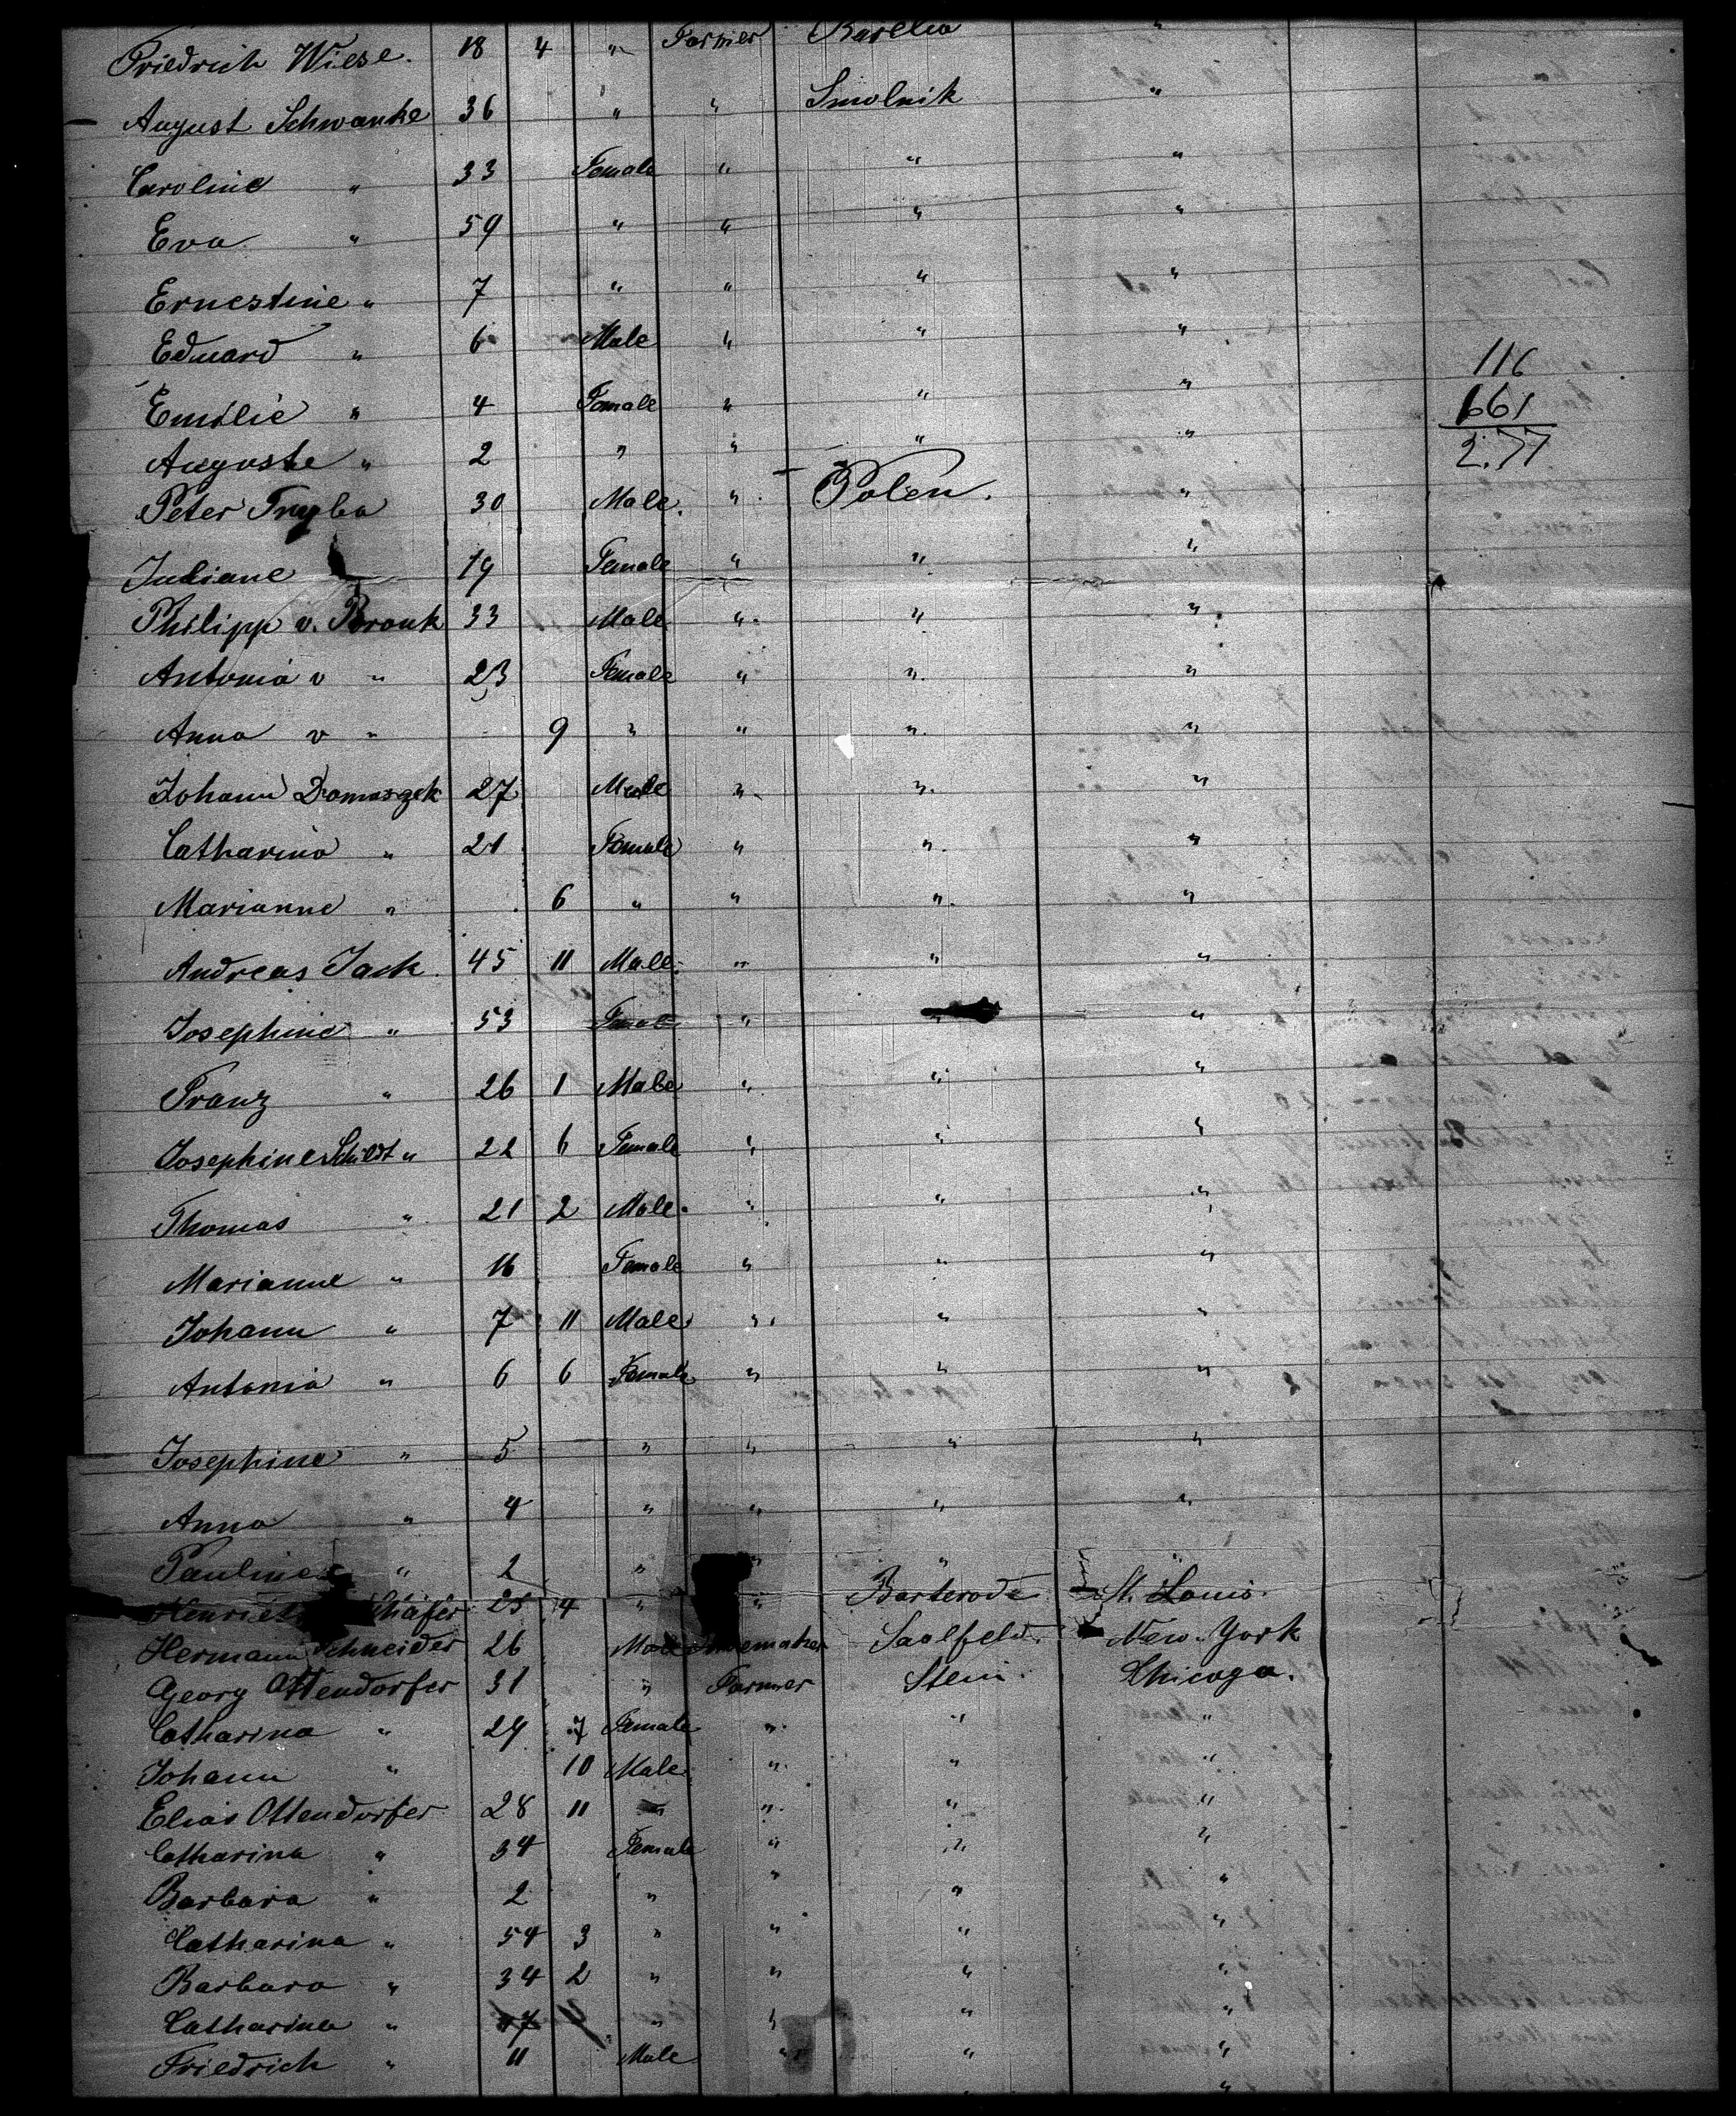 Friedrich Wiese. 18 4 " Farmer Barelia "
August Schwanke 36 " " Smolnik "
Caroline " 33 Female " " "
Eva " 59 " " " "
Ernestine " 7 " " " "
Eduard " 6 Male " " "
116
Emilie " 4 Female " " "
661
Auguste " 2 " " " "
2.77
Peter Tryba 30 Male. " Polen. "
Juliane 19 Female " " "
Philipp v. Bronk 33 Male " " "
Antonia v " 23 Female " " "
Anna v " 9 " " " "
Johann Domaszek 27 Male " " "
Catharina " 21 Female " " "
Marianne " 6 " " " "
Andreas Jack 45 11 Male " " "
Josephine " 53 Female " " "
Franz " 26 1 Male " " "
Josephine Schildt " 22 6 Female " " "
Thomas " 21 2 Male " " "
Marianne " 16 Female " " "
Johann " 7 11 Male " " "
Antonia " 6 6 Female " " "
Josephine " 5 " " " "
Anna " 4 " " " "
Pauline " 2 " " " "
Schäfer 25 4 " " Barterode St. Louis.
Hermann Schneider 26 Male Shoemaker Saalfeld. New-York
Georg Ottendorfer 31 " Farmer Stein. Chicago.
Catharina " 29 7 Female " " "
Johann " 10 Male " " "
Elias Ottendorfer 28 11 " " " "
Catharina " 34 Female " " "
Barbara " 2 " " " "
Catharina " 54 3 " " " "
Barbara " 34 2 " " " "
Catharina " 7 " " " "
Friedrich " 11 Male " " "